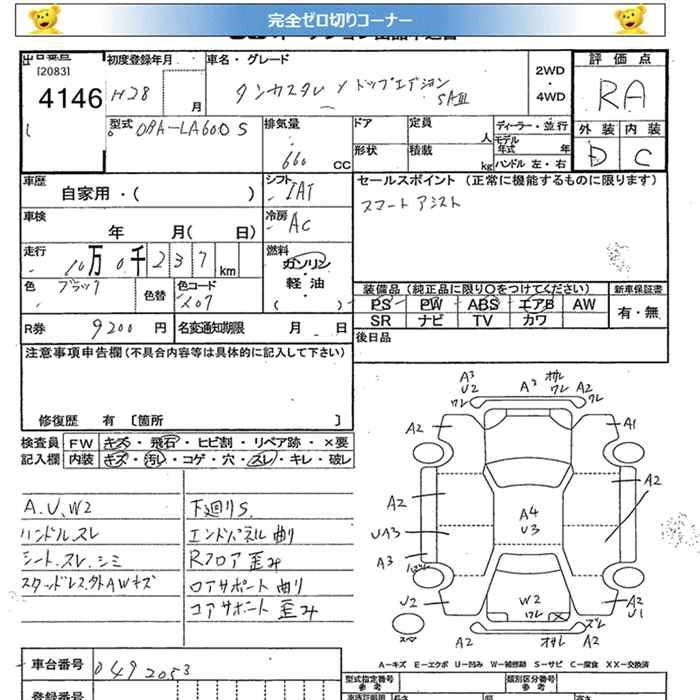 完全ゼロ切りコーナー
[2083]
4146
初度登録年月
H28 月
車名・グレード
タンカスタム Xトップエディション
SAⅢ
2WD
・
4WD
評価点
RA
外装 内装
D C
型式 DBA-LA600S
排気量
660 CC
ドア
定員
人
形状
積載
kg
ディーラー・並行
モデル
年式 年
ハンドル 左・右
車歴
自家用・( )
シフト
IAT
車検
年 月( 日)
冷房
AC
セールスポイント (正常に機能するものに限ります)
スマートアシスト
走行
10万0千237km
燃料
ガソリン
・
軽油
( )
色
ブラック
色替
色コード
X07
装備品 (純正品に限り○をつけてください)
PS PW ABS エアB AW
SR ナビ TV カワ
新車保証書
有・無
R券 9200円
名変通知期限 月 日
後日品
注意事項申告欄(不具合内容等は具体的に記入して下さい)
修復歴 有 〔箇所 〕
検査員
記入欄
FW キズ・飛石・ヒビ割・リペア跡・×要
内装 キズ・汚れ・コゲ・穴・スレ・キレ・破レ
A.U.W2
ハンドルスレ
シート.スレ.シミ
スタッドレス外AWキズ
下廻りS.
エンドパネル曲り
Rフロア歪み
ロアサポート曲り
コアサポート歪み
A3
U2
ワレ
A3
ガリ
ワレ
A2
ワレ
A2
A1
A2
A2
UA3
A3
A4
U3
U2
W2
ワレ
A2
U1
スマ
A2
ガリ
A2
ズレ
A-キズ E-エクボ U-凹み W-補修跡 S-サビ C-腐食 XX-交換済
車台番号 0492053
登録番号
型式指定番号
参考
類別区分番号
参考